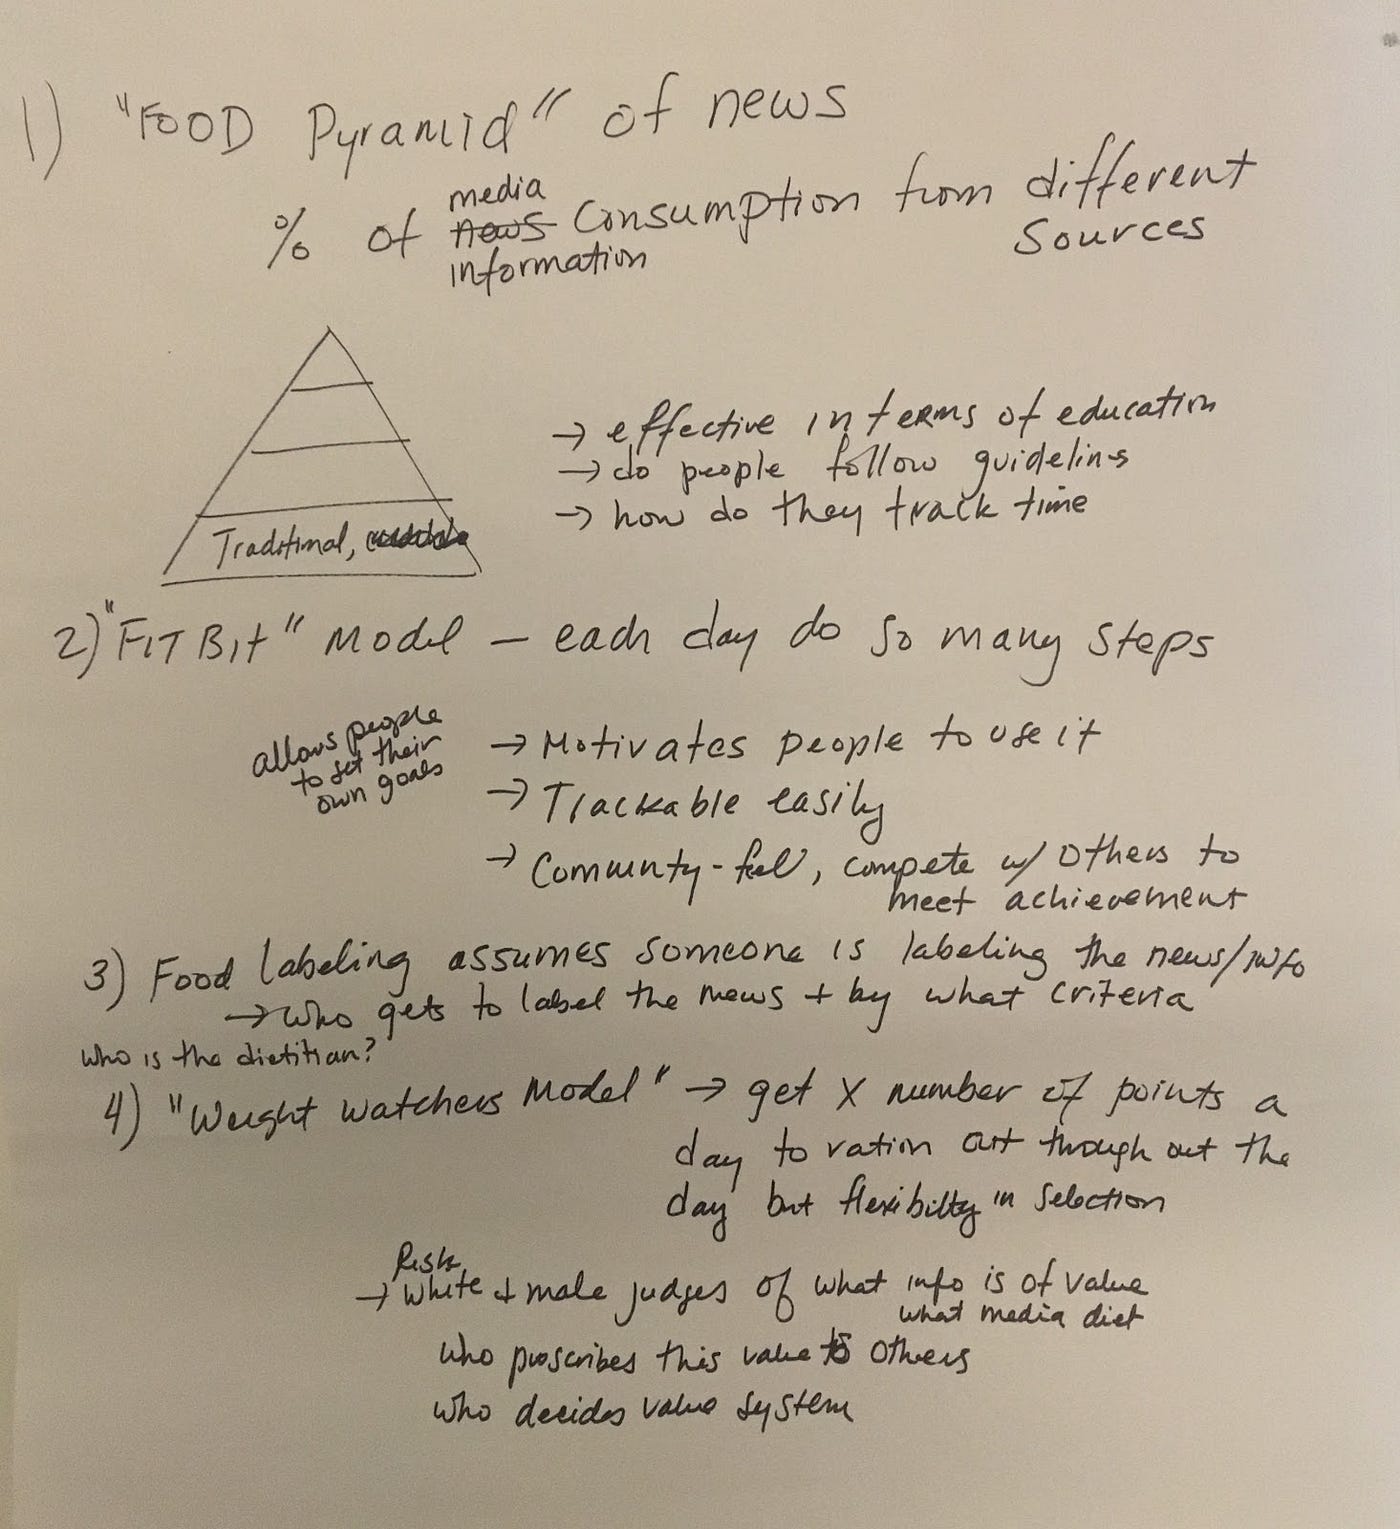 1) "FOOD Pyramid" of news
media
% of news Consumption from different
information
Sources
→ effective in terms of education
→ do people follow guidelins
→ how do they track time
Traditional,
2) "FITBit" Model — each day do so many steps
allows people
to set their
own goals
→ Motivates people to use it
→ Trackable easily
→ Community-feel, compete w/ others to
meet achievement
3) Food labeling assumes someone is labeling the news/info
→ who gets to label the news + by what criteria
who is the dietitian?
4) "Weight watchers Model" → get X number of points a
day to ration out through out the
day but flexibility in selection
Risk
→ white + male judges of what info is of value
what media diet
who proscribes this value to others
who decides value system